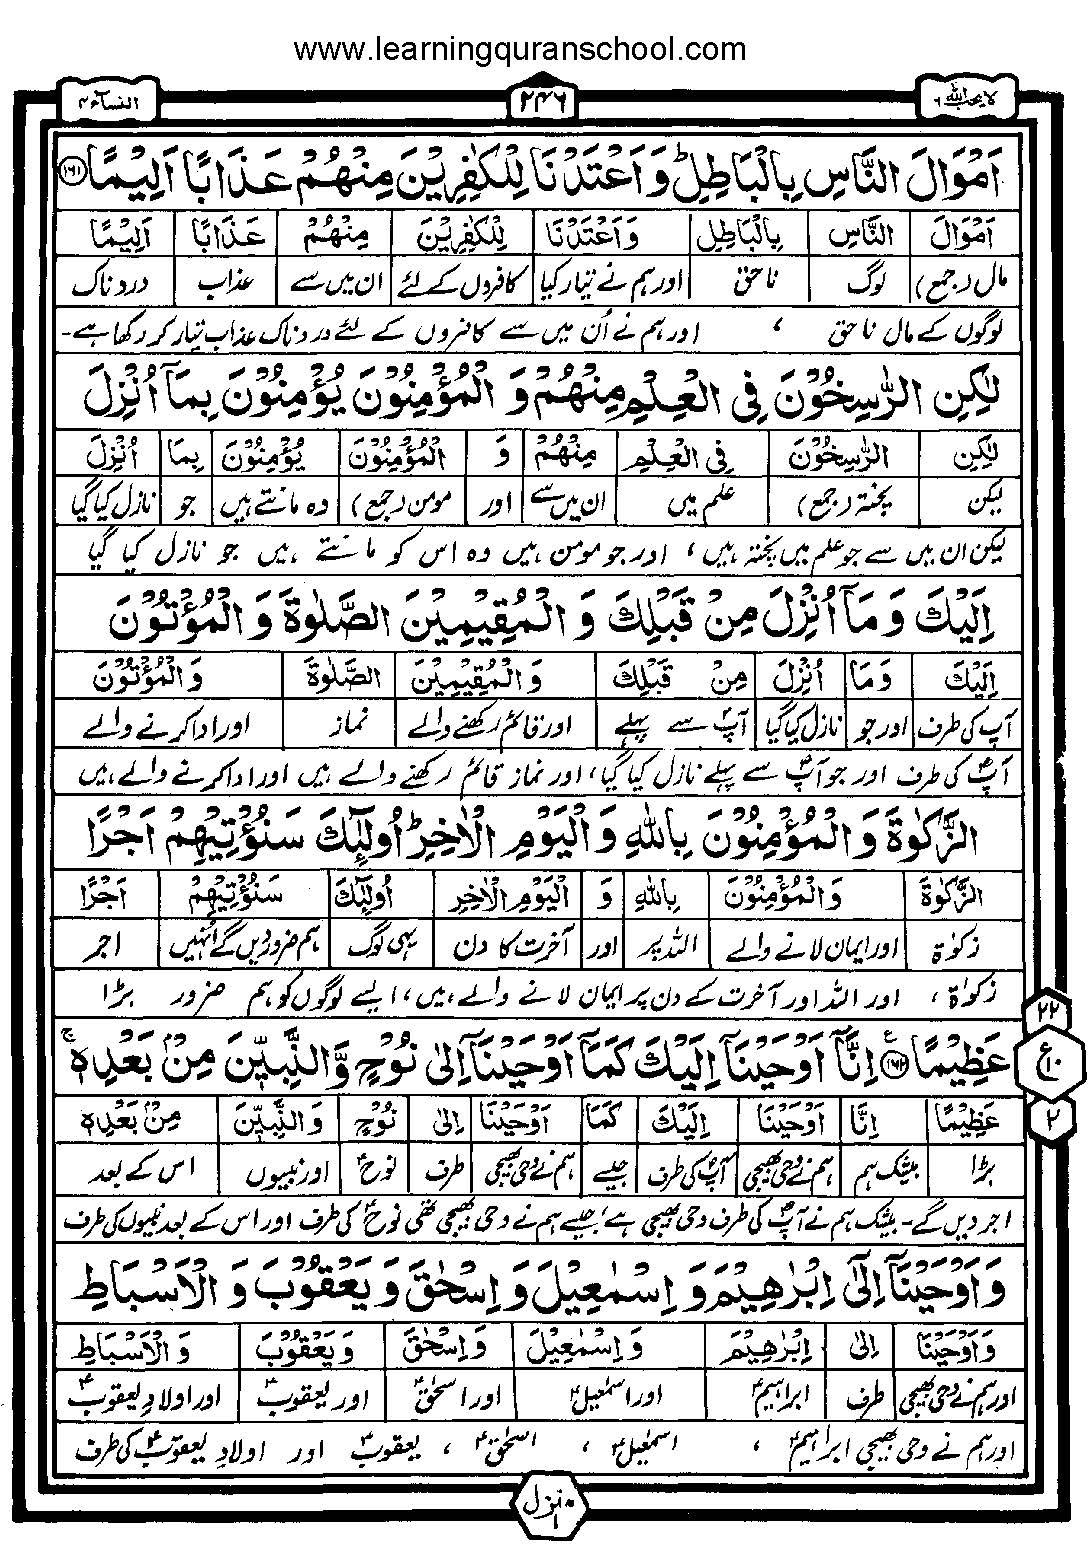 www.learningquranschool.com
لا يحب الله ٦
٢٤٦
النسآء ٤
اَمْوَالَ النَّاسِ بِالْبَاطِلِ ؕ وَاَعْتَدْنَا لِلْكٰفِرِيْنَ مِنْهُمْ عَذَابًا اَلِيْمًا ﴿۱۶۱﴾
اَمْوَالَ النَّاسِ بِالْبَاطِلِ وَاَعْتَدْنَا لِلْكٰفِرِيْنَ مِنْهُمْ عَذَابًا اَلِيْمًا
مال (جمع) لوگ ناحق اور ہم نے تیار کیا کافروں کے لئے ان میں سے عذاب دردناک
لوگوں کے مال ناحق ، اور ہم نے اُن میں سے کافروں کے لئے دردناک عذاب تیار کر رکھا ہے۔
لٰكِنِ الرّٰسِخُوْنَ فِي الْعِلْمِ مِنْهُمْ وَ الْمُؤْمِنُوْنَ يُؤْمِنُوْنَ بِمَآ اُنْزِلَ
لٰكِنِ الرّٰسِخُوْنَ فِي الْعِلْمِ مِنْهُمْ وَ الْمُؤْمِنُوْنَ يُؤْمِنُوْنَ بِمَا اُنْزِلَ
لیکن پختہ (جمع) علم میں ان میں سے اور مومن (جمع) وہ مانتے ہیں جو نازل کیا گیا
لیکن ان میں سے جو علم میں پختہ ہیں ، اور جو مومن ہیں وہ اس کو مانتے ہیں جو نازل کیا گیا
اِلَيْكَ وَ مَآ اُنْزِلَ مِنْ قَبْلِكَ وَ الْمُقِيْمِيْنَ الصَّلٰوةَ وَ الْمُؤْتُوْنَ
اِلَيْكَ وَمَا اُنْزِلَ مِنْ قَبْلِكَ وَالْمُقِيْمِيْنَ الصَّلٰوةَ وَالْمُؤْتُوْنَ
آپ کی طرف اور جو نازل کیا گیا آپؐ سے پہلے اور قائم رکھنے والے نماز اور ادا کرنے والے
آپؐ کی طرف اور جو آپؐ سے پہلے نازل کیا گیا، اور نماز قائم رکھنے والے ہیں اور ادا کرنے والے ہیں
الزَّكٰوةَ وَ الْمُؤْمِنُوْنَ بِاللّٰهِ وَ الْيَوْمِ الْاٰخِرِ ؕ اُولٰٓئِكَ سَنُؤْتِيْهِمْ اَجْرًا
الزَّكٰوةَ وَالْمُؤْمِنُوْنَ بِاللّٰهِ وَ الْيَوْمِ الْاٰخِرِ اُولٰٓئِكَ سَنُؤْتِيْهِمْ اَجْرًا
زکوٰۃ اور ایمان لانے والے اللہ پر اور آخرت کا دن یہی لوگ ہم ضرور دیں گے اُنہیں اجر
زکوٰۃ ، اور اللہ اور آخرت کے دن پر ایمان لانے والے ہیں، ایسے لوگوں کو ہم ضرور بڑا
٢٢
ع ١٠
٢
عَظِيْمًا ﴿۱۶۲﴾ اِنَّآ اَوْحَيْنَآ اِلَيْكَ كَمَآ اَوْحَيْنَآ اِلٰى نُوْحٍ وَّالنَّبِيّٖنَ مِنْۢ بَعْدِهٖ ۚ
عَظِيْمًا اِنَّا اَوْحَيْنَا اِلَيْكَ كَمَا اَوْحَيْنَا اِلٰى نُوْحٍ وَالنَّبِيّٖنَ مِنْۢ بَعْدِهٖ
بڑا بیشک ہم ہم نے وحی بھیجی آپؐ کی طرف جیسے ہم نے وحی بھیجی طرف نوحؑ اور نبیوں اس کے بعد
اجر دیں گے۔ بیشک ہم نے آپؐ کی طرف وحی بھیجی ہے، جیسے ہم نے وحی بھیجی تھی نوحؑ کی طرف اور اس کے بعد نبیوں کی طرف
وَ اَوْحَيْنَآ اِلٰٓى اِبْرٰهِيْمَ وَ اِسْمٰعِيْلَ وَ اِسْحٰقَ وَ يَعْقُوْبَ وَ الْاَسْبَاطِ
وَاَوْحَيْنَا اِلٰى اِبْرٰهِيْمَ وَاِسْمٰعِيْلَ وَاِسْحٰقَ وَيَعْقُوْبَ وَالْاَسْبَاطِ
اور ہم نے وحی بھیجی طرف ابراہیمؑ اور اسمٰعیلؑ اور اسحٰقؑ اور یعقوبؑ اور اولادِ یعقوبؑ
اور ہم نے وحی بھیجی ابراہیمؑ ، اسمٰعیلؑ ، اسحٰقؑ ، یعقوبؑ اور اولادِ یعقوبؑ کی طرف
منزل ١